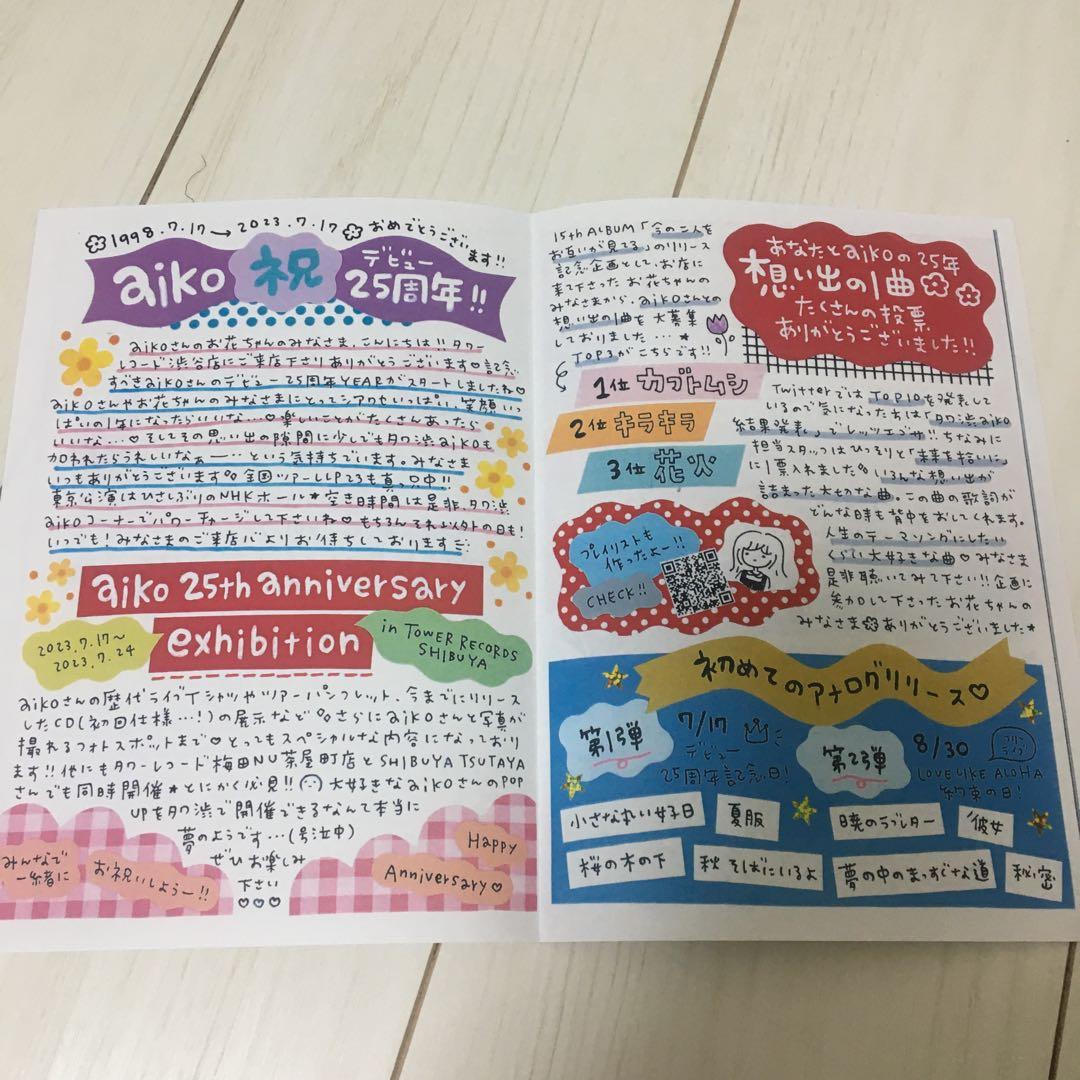 1998.7.17→2023.7.17 おめでとうござい
ます!!
aiko 祝 デビュー
25周年!!
aikoさんのお花ちゃんのみなさま、こんにちは!!タワー
レコード渋谷店にご来店下さりありがとうございます♡記念
すべきaikoさんのデビュー25周年YEARがスタートしましたね♡
aikoさんやお花ちゃんのみなさまにとってシアワセいっぱい、笑顔いっ
ぱいの1年になったらいいな…♡楽しいことがたくさんあったら
いいな…♡そしてその思い出の隙間に少しでもタワ渋aikoも
加われたらうれしいなぁー…という気持ちでいます。みなさま
いつもありがとうございます 全国ツアーLLP23も真っ只中!!
東京公演はひさしぶりのNHKホール★空き時間は是非、タワ渋
aikoコーナーでパワーチャージして下さいね♡もちろんそれ以外の日も!
いつでも!みなさまのご来店心よりお待ちしております
aiko 25th anniversary
exhibition
2023.7.17〜
2023.7.24
in TOWER RECORDS
SHIBUYA
aikoさんの歴代ライブTシャツやツアーパンフレット、今までにリリース
したCD(初回仕様…!)の展示など さらにaikoさんと写真が
撮れるフォトスポットまで♡とってもスペシャルな内容になっており
ます!!他にもタワーレコード梅田NU茶屋町店とSHIBUYA TSUTAYA
さんでも同時開催★とにかく必見!! 大好きなaikoさんのPOP
UPをタワ渋で開催できるなんて本当に
夢のようです…(号泣中)
ぜひお楽しみ
下さい
♡♡♡
みんなで
一緒に
お祝いしようー!!
Happy
Anniversary♡
15th ALBUM「今の二人を
お互いが見てる」のリリース
記念企画として、お店に
来て下さったお花ちゃんの
みなさまから、aikoさんとの
想い出の1曲を大募集
しておりました…★
TOP3がこちらです!!
あなたとaikoの25年
想い出の1曲
たくさんの投票
ありがとうございました!!
1位 カブトムシ
2位 キラキラ
3位 花火
プレイリストも
作ったよー!!
CHECK!!
TwitterではTOP10を発表して
いるので気になった方は「タワ渋aiko
結果発表」でレッツエゴサ!!ちなみに
担当スタッフはひっそりと「未来を拾いに」
に1票入れました いろんな想い出が
詰まった大切な曲。この曲の歌詞が
どんな時も背中をおしてくれます。
人生のテーマソングにしたい
くらい大好きな曲♡みなさま
是非聴いてみて下さい!!企画に
参加して下さったお花ちゃんの
みなさま ありがとうございました★
初めてのアナログリリース♡
第1弾
7/17
デビュー
25周年記念日!
第2弾
8/30
フリー
ライブ!
LOVE LIKE ALOHA
約束の日!
小さな丸い好日
夏服
桜の木の下
秋 そばにいるよ
暁のラブレター
彼女
夢の中のまっすぐな道
秘密